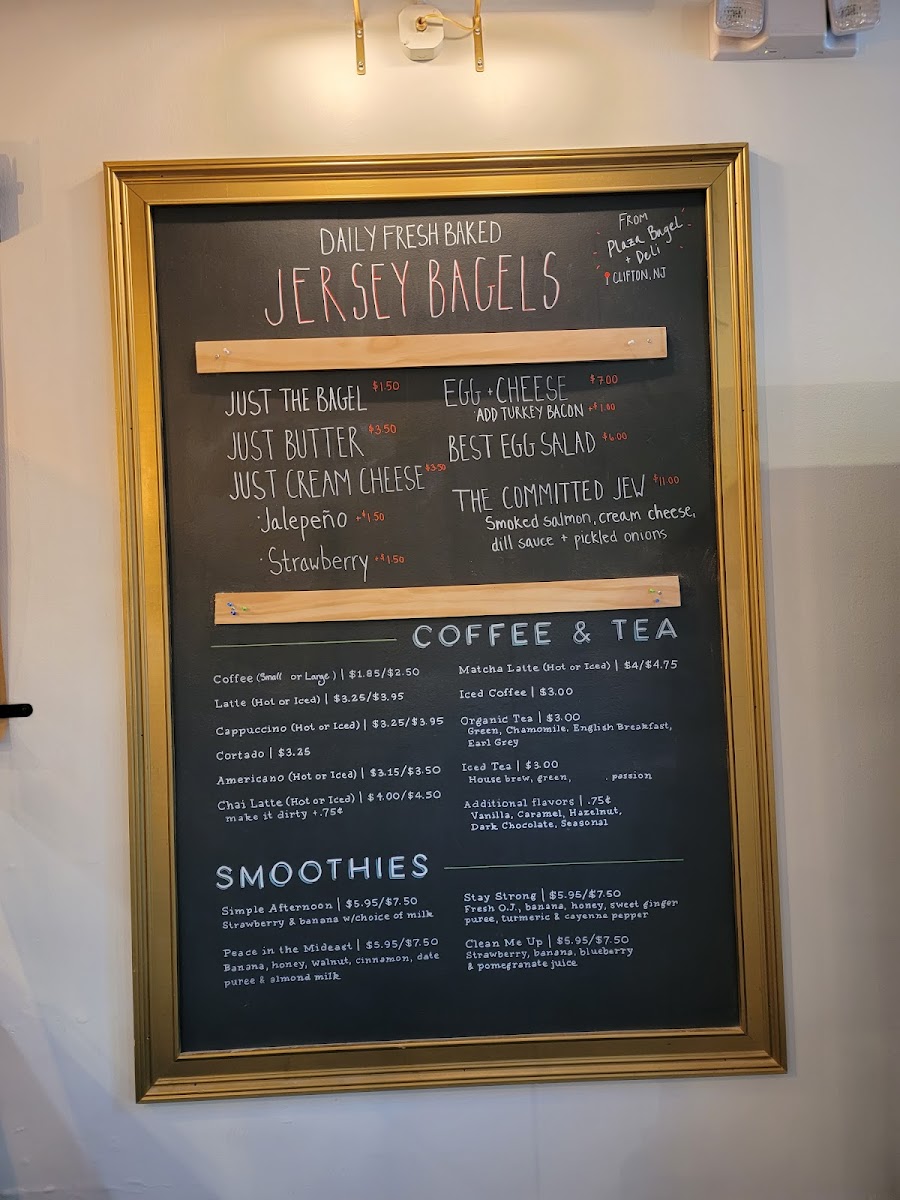 DAILY FRESH BAKED
JERSEY BAGELS
FROM
Plaza Bagel
+ Deli
CLIFTON, NJ
JUST THE BAGEL $1.50
JUST BUTTER $3.50
JUST CREAM CHEESE $3.50
·Jalepeño +$1.50
·Strawberry +$1.50
EGG + CHEESE $7.00
·ADD TURKEY BACON +$1.00
BEST EGG SALAD $6.00
THE COMMITTED JEW $11.00
Smoked salmon, cream cheese,
dill sauce + pickled onions
COFFEE & TEA
Coffee (Small or Large) | $1.85/$2.50
Latte (Hot or Iced) | $3.25/$3.95
Cappuccino (Hot or Iced) | $3.25/$3.95
Cortado | $3.25
Americano (Hot or Iced) | $3.15/$3.50
Chai Latte (Hot or Iced) | $4.00/$4.50
make it dirty +.75¢
Matcha Latte (Hot or Iced) | $4/$4.75
Iced Coffee | $3.00
Organic Tea | $3.00
Green, Chamomile, English Breakfast,
Earl Grey
Iced Tea | $3.00
House brew, green, , passion
Additional flavors | .75¢
Vanilla, Caramel, Hazelnut,
Dark Chocolate, Seasonal
SMOOTHIES
Simple Afternoon | $5.95/$7.50
Strawberry & banana w/choice of milk
Peace in the Mideast | $5.95/$7.50
Banana, honey, walnut, cinnamon, date
puree & almond milk
Stay Strong | $5.95/$7.50
Fresh O.J., banana, honey, sweet ginger
puree, turmeric & cayenne pepper
Clean Me Up | $5.95/$7.50
Strawberry, banana, blueberry
& pomegranate juice